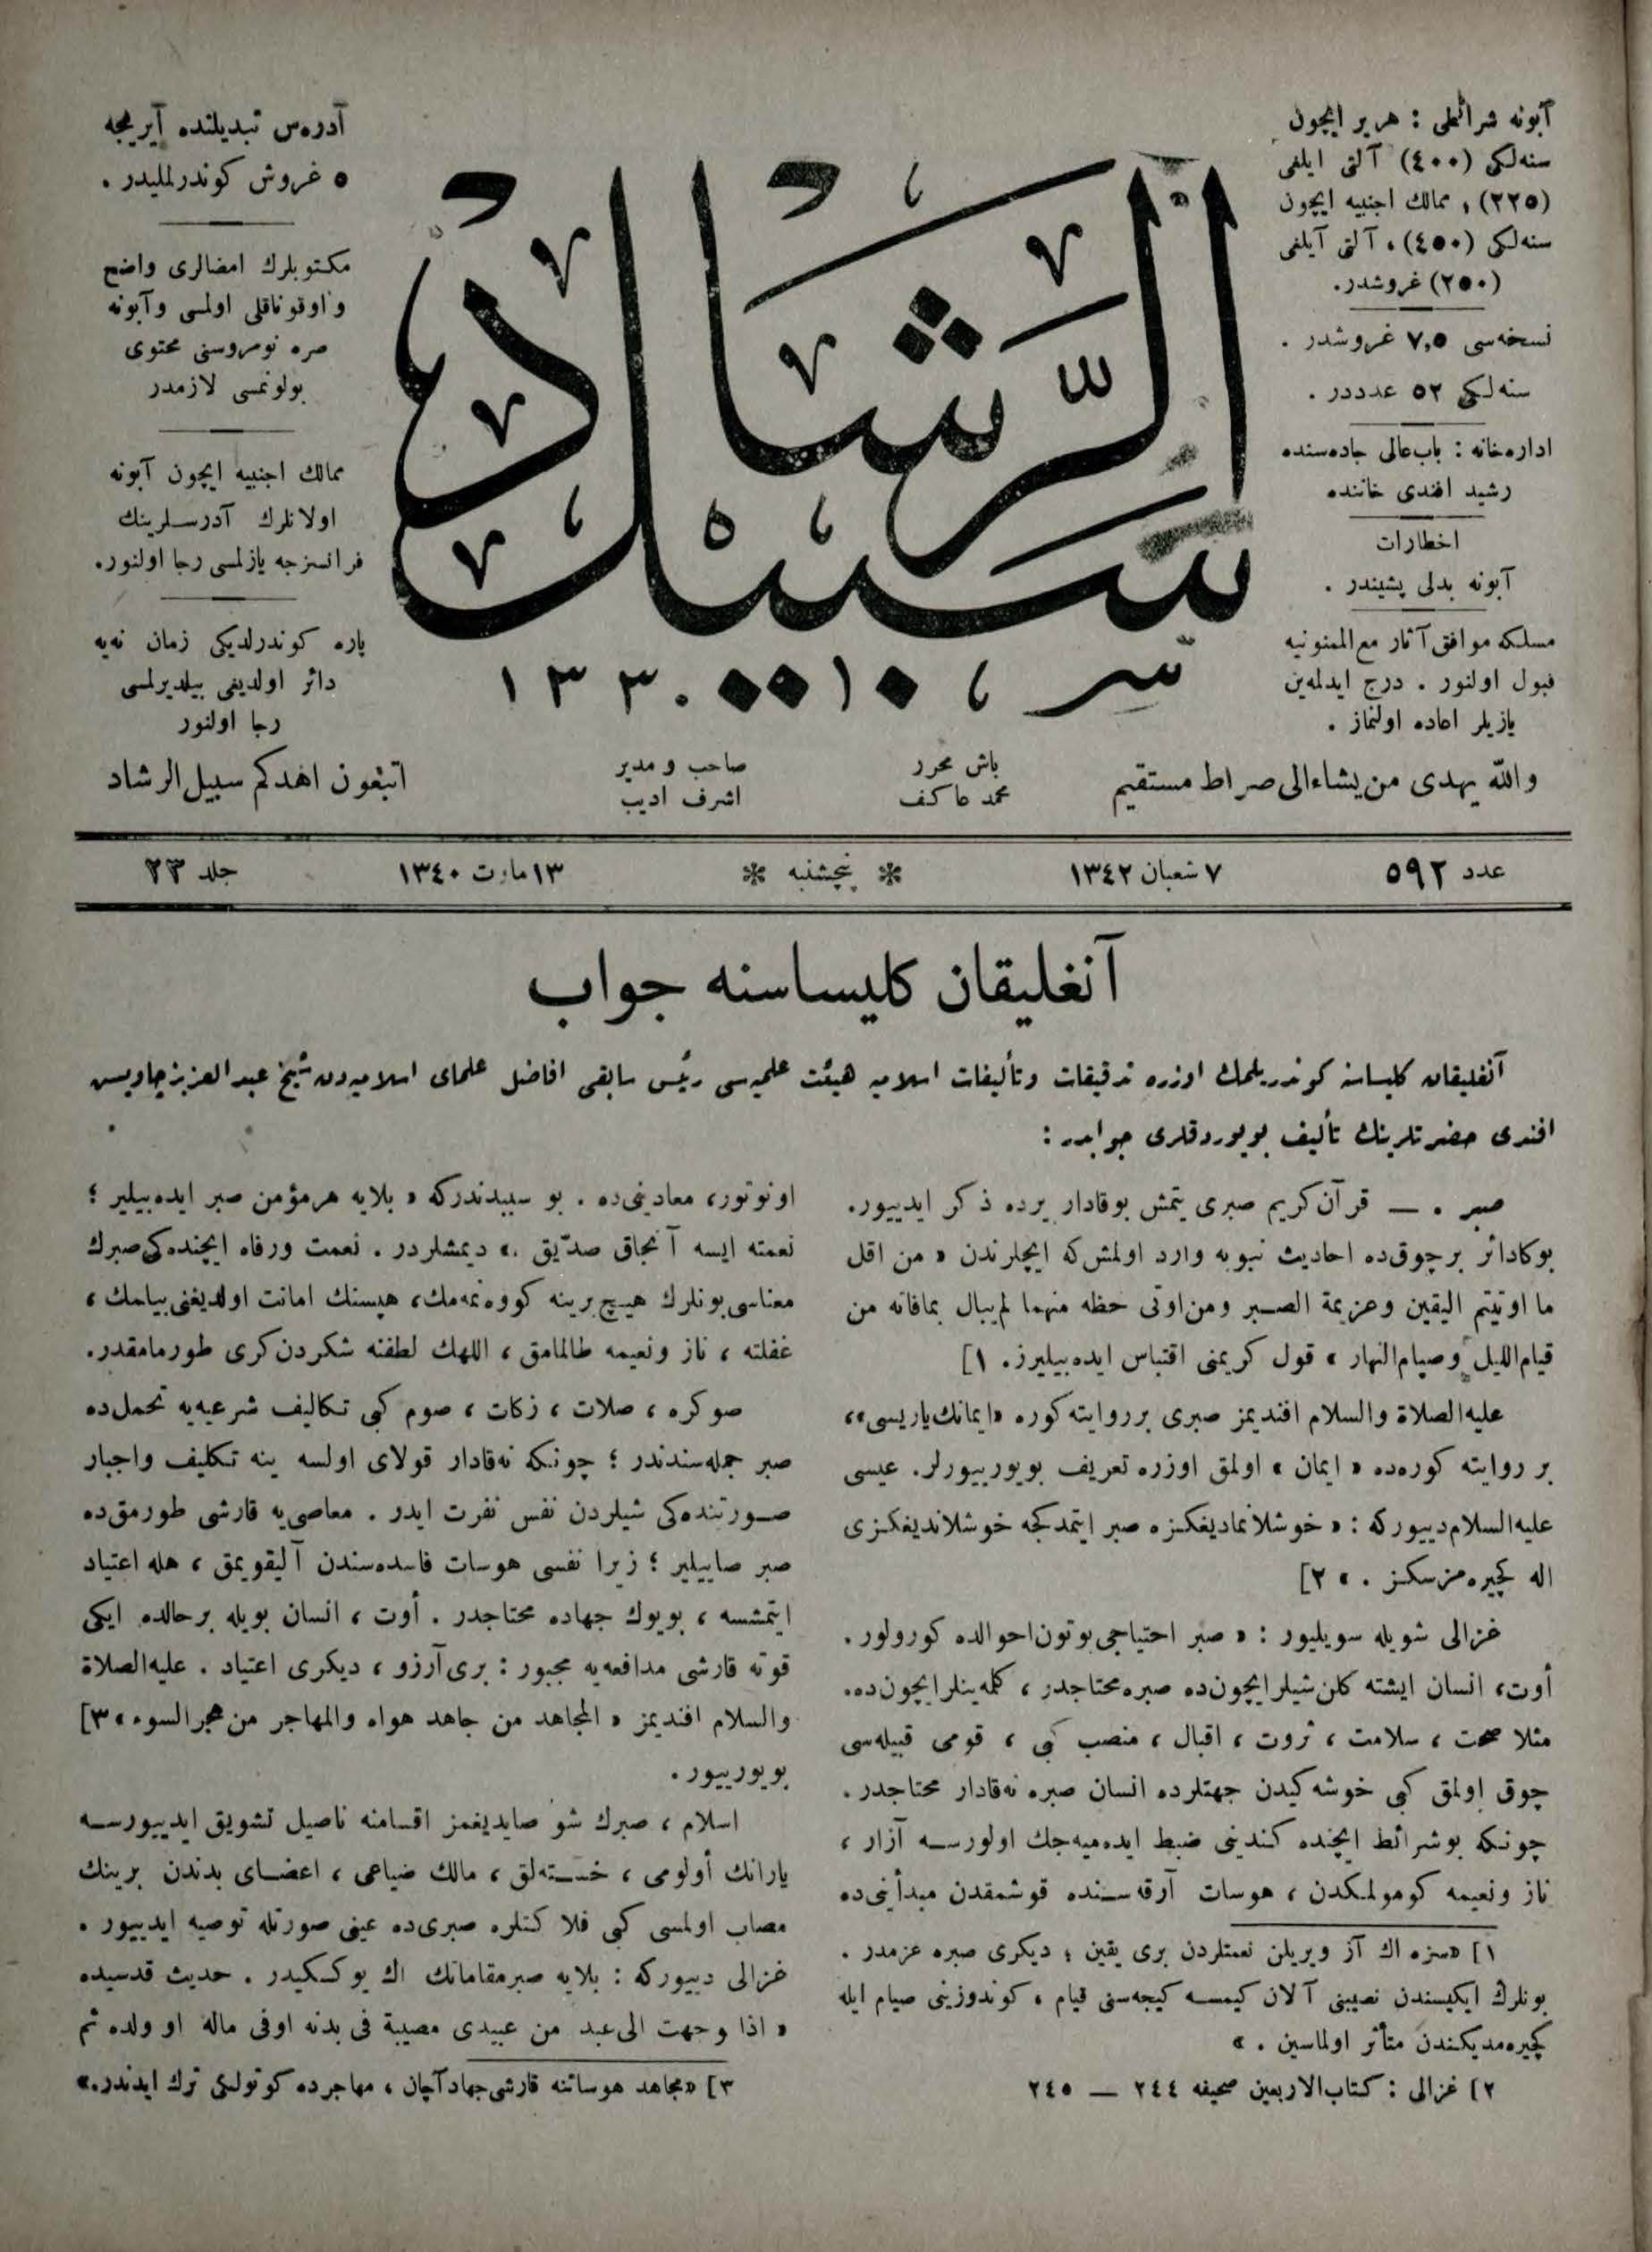 آبونه شرائطی : هر یر ایچون
سنه‌لکی (٤٠٠) آلتی ایلغی
(٢٢٥) ، ممالك اجنبیه ایچون
سنه‌لکی (٤٥٠) ، آلتی آیلغی
(٢٥٠) غروشدر.
نسخه‌سی ٧,٥ غروشدر .
سنه‌لکی ٥٢ عدددر .
اداره‌خانه : باب‌عالی جاده‌سنده
رشید افندی خاننده
اخطارات
آبونه بدلی پشیندر .
مسلکه موافق آثار مع‌الممنونیه
قبول اولنور . درج ایدلمه‌ین
یازیلر اعاده اولنماز .
سبیل الرشاد
١٣٣٠
آدره‌س تبدیلنده آیریجه
٥ غروش کوندرلملیدر .
مکتوبلرك امضالری واضح
واوقوناقلی اولمسی وآبونه
صره نومروسنی محتوی
بولونمسی لازمدر
ممالك اجنبیه ایچون آبونه
اولانلرك آدرسلرینك
فرانسزجه یازلمسی رجا اولنور.
پاره کوندرلدیکی زمان نه‌یه
دائر اولدیغی بیلدیرلمسی
رجا اولنور
والله یهدی من یشاء الی صراط مستقیم
باش محرر
محمد عاکف
صاحب و مدیر
اشرف ادیب
اتبعون اهدکم سبیل الرشاد
عدد ٥٩٢
٧ شعبان ١٣٤٢
پنجشنبه
١٣ مارت ١٣٤٠
جلد ٢٣
آنغلیقان کلیساسنه جواب
آنغلیقان کلیساسنه کوندریلمك اوزره تدقیقات وتألیفات اسلامیه هیئت علمیه‌سی رئیس سابقی افاضل علمای اسلامیه‌دن شیخ عبدالعزیز چاویش
افندی حضرتلرینك تألیف بویوردقلری جوابدر :
صبر . — قرآن کریم صبری یتمش بوقادار یرده ذکر ایدییور.
بوکادائر برچوق‌ده احادیث نبویه وارد اولمش‌که ایچلرندن « من اقل
ما اوتیتم الیقین وعزیمة الصبر ومن‌اوتی حظه منهما لم‌یبال بمافاته من
قیام‌اللیل وصیام‌النهار » قول کریمنی اقتباس ایده‌بیلیرز. ١]
علیه‌الصلاة والسلام افندیمز صبری برروایته کوره «ایمانك‌یاریسی»،
بر روایته کوره‌ده « ایمان » اولمق اوزره تعریف بویورییورلر. عیسی
علیه‌السلام‌دییورکه : « خوشلانمادیغکزه صبر ایتمدکجه خوشلاندیغکزی
اله کچیره‌مزسکز . » ٢]
غزالی شویله سویلیور : « صبر احتیاجی‌بوتون‌احوالده کورولور.
أوت، انسان ایشته کلن‌شیلرایچون‌ده صبره‌محتاجدر ، کلمه‌ینلرایچون‌ده.
مثلا صحت ، سلامت ، ثروت ، اقبال ، منصب کبی ، قومی قبیله‌سی
چوق اولمق کبی خوشه‌کیدن جهتلرده انسان صبره نه‌قادار محتاجدر.
چونکه بوشرائط ایچنده کندینی ضبط ایده‌میه‌جك اولورسه آزار ،
ناز ونعیمه کومولمکدن ، هوسات آرقه‌سنده قوشمقدن مبدأینی‌ده
١] «سزه اك آز ویریلن نعمتلردن بری یقین ؛ دیکری صبره عزمدر .
بونلرك ایکیسندن نصیبنی آلان کیمسه کیجه‌سنی قیام ، کوندوزینی صیام ایله
کچیره‌مدیکندن متأثر اولماسین . »
٢] غزالی : کتاب‌الاربعین صحیفه ٢٤٤ — ٢٤٥
اونوتور، معادینی‌ده . بو سببدندرکه « بلایه هرمؤمن صبر ایده‌بیلیر ؛
نعمته ایسه آنجاق صدّیق .» دیمشلردر . نعمت ورفاه ایچنده‌کی‌صبرك
معناسی‌بونلرك هیچ‌برینه کووه‌نمه‌مك، هپسنك امانت اولدیغنی‌بیلمك ،
غفلته ، ناز ونعیمه طالمامق ، اللهك لطفنه شکردن‌کری طورمامقدر.
صوکره ، صلات ، زکات ، صوم کبی تکالیف شرعیه‌یه تحمل‌ده
صبر جمله‌سندندر ؛ چونکه نه‌قادار قولای اولسه ینه تکلیف واجبار
صورتنده‌کی شیلردن نفس نفرت ایدر . معاصی‌یه قارشی طورمق‌ده
صبر صاییلیر ؛ زیرا نفسی هوسات فاسده‌سندن آلیقویمق ، هله اعتیاد
ایتمشسه ، بویوك جهاده محتاجدر . أوت ، انسان بویله برحالده ایکی
قوته قارشی مدافعه‌یه مجبور : بری‌آرزو ، دیکری اعتیاد . علیه‌الصلاة
والسلام افندیمز « المجاهد من جاهد هواه والمهاجر من هجرالسوء »٣]
بویورییور.
اسلام ، صبرك شو صایدیغمز اقسامنه ناصیل تشویق ایدییورسه
یارانك أولومی ، خسته‌لق ، مالك ضیاعی ، اعضای بدندن برینك
مصاب اولمسی کبی فلاکتلره صبری‌ده عینی صورتله توصیه ایدییور .
غزالی دییورکه : بلایه صبرمقاماتك اك یوکسکیدر . حدیث قدسیده
« اذا وجهت الی‌عبد من عبیدی مصیبة فی بدنه اوفی ماله او ولده ثم
٣] «مجاهد هوساتنه قارشی‌جهادآچان ، مهاجرده کوتولکی ترك ایدندر.»